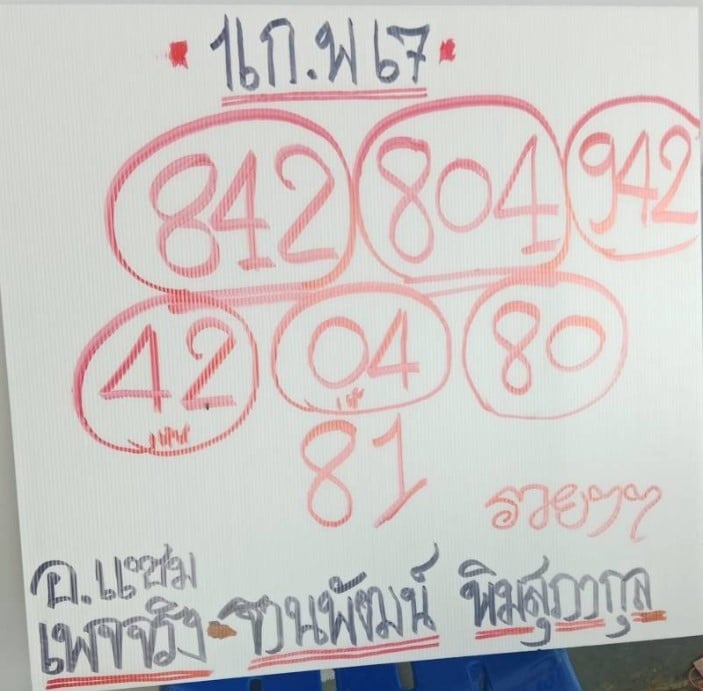 1 ก.พ 67
842 804 942
42 04 80
81
รวยๆๆ
อ.แชม
เพจจริง-ชานพัฒน์ พิมสุภากุล